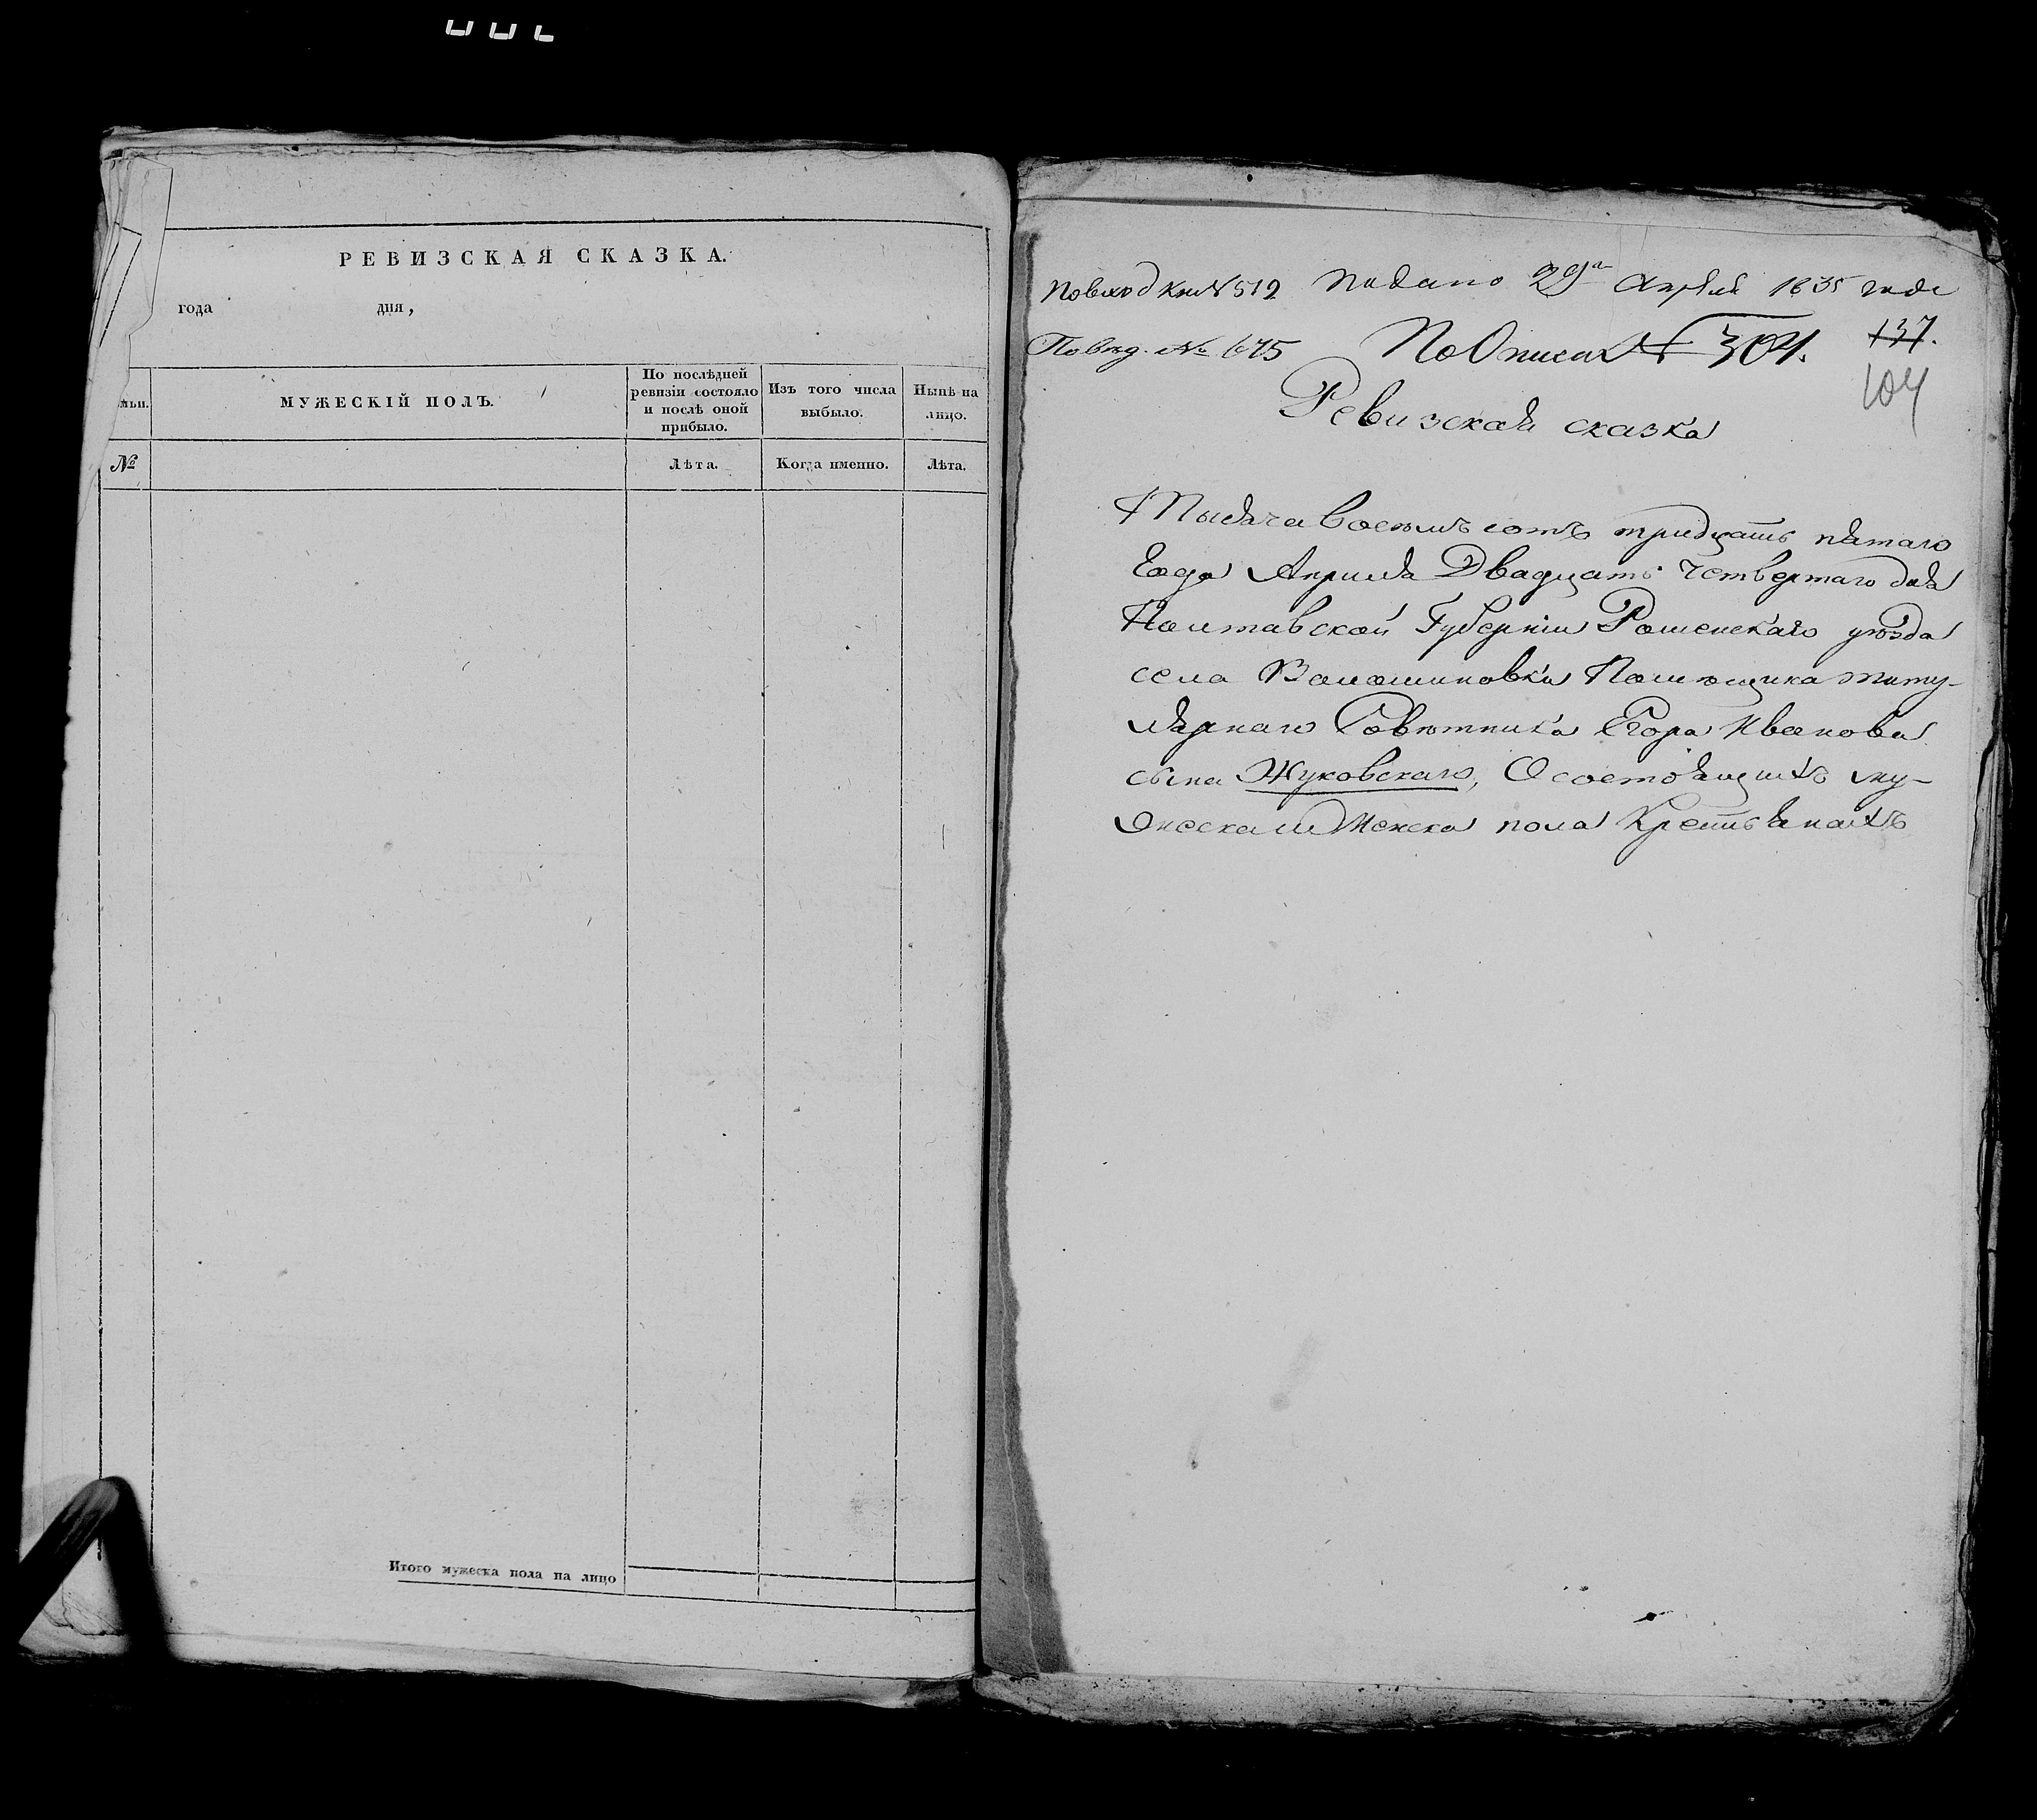 РЕВИЗСКАЯ СКАЗКА.
года дня,
МУЖЕСКІЙ ПОЛЪ.
По послѣдней ревизіи состояло и послѣ оной прибыло.
Изъ того числа выбыло.
Нынѣ на лицо.
№
Лѣта.
Когда именно.
Лѣта.
Итого мужеска пола на лицо
По вход Кни № 519 Подано 29го Апреля 1835 года
По вѣд. № 675 По Описи № 304. 137.
104
Ревизская сказка
Тысяча восемъ сотъ тридцать пятаго
Года Апреля Двадцать Четвертаго дня
Полтавской Губерніи Роменскаго уѣзда
села Волошиновки Помѣщика титу-
лярнаго Совѣтника Егора Иванова
сына Жуковскаго, О состоящихъ му-
жеска и Женска пола Крестьянахъ